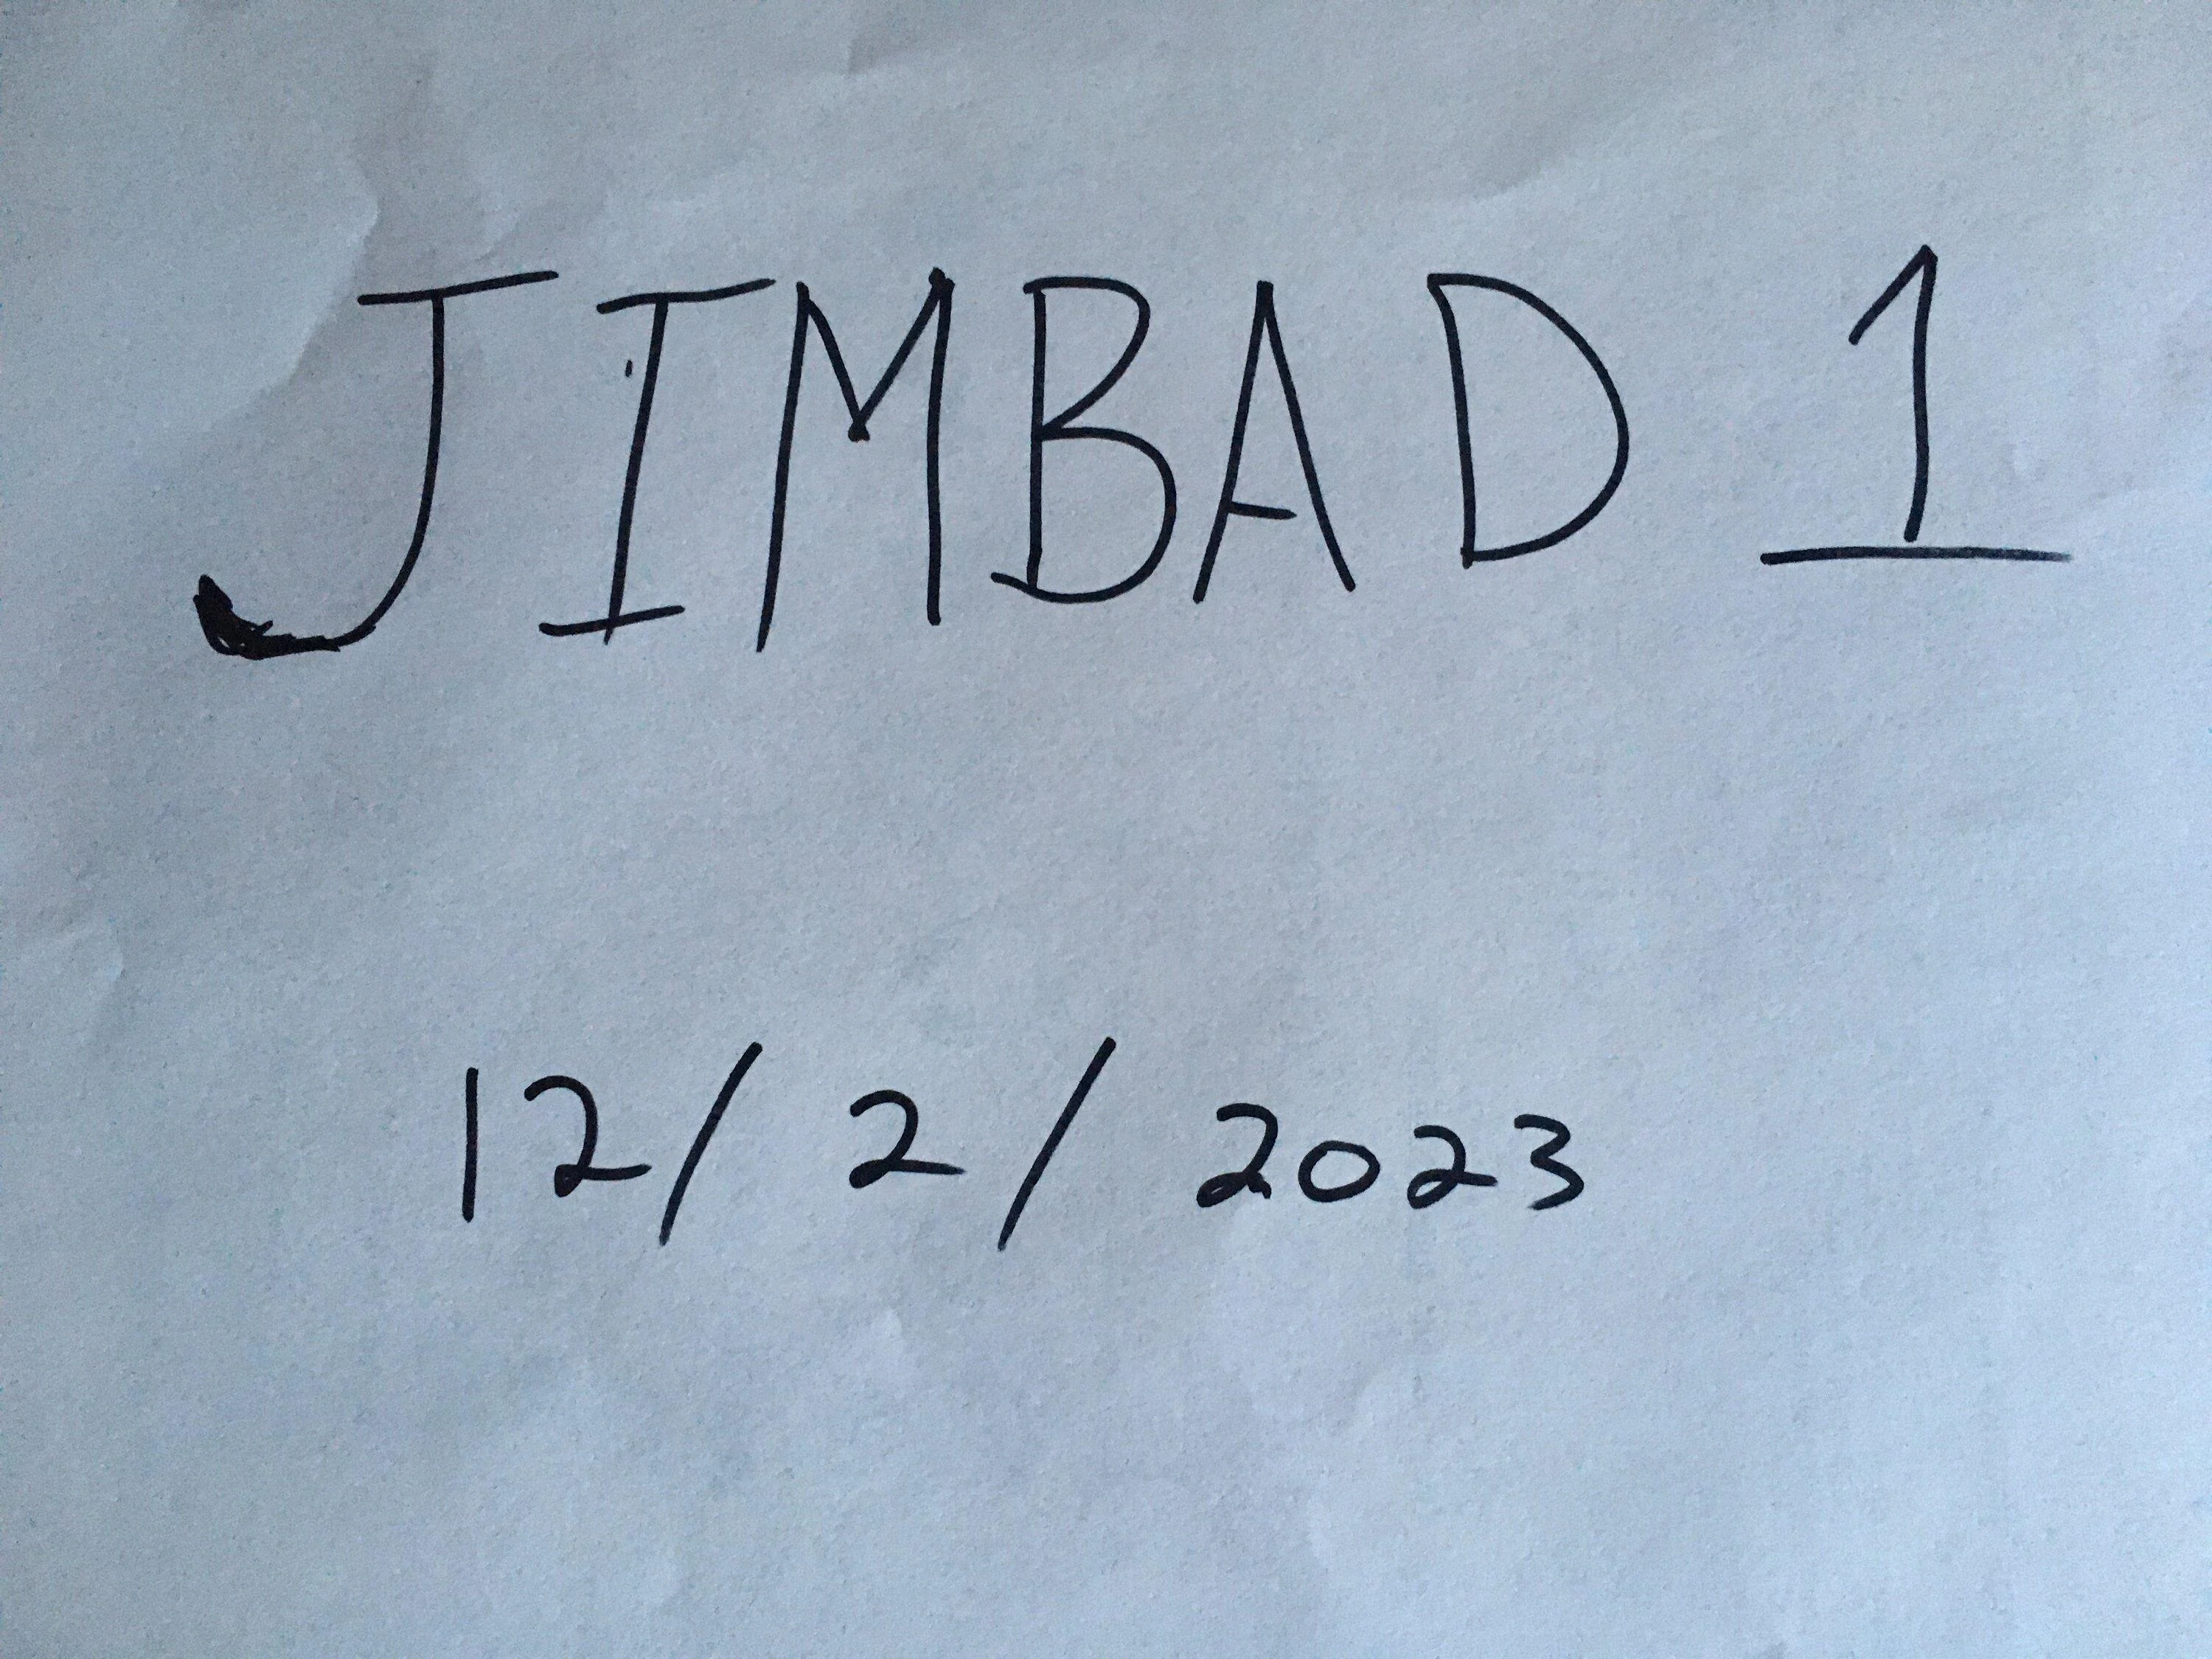 JIMBAD 1
12/2/2023